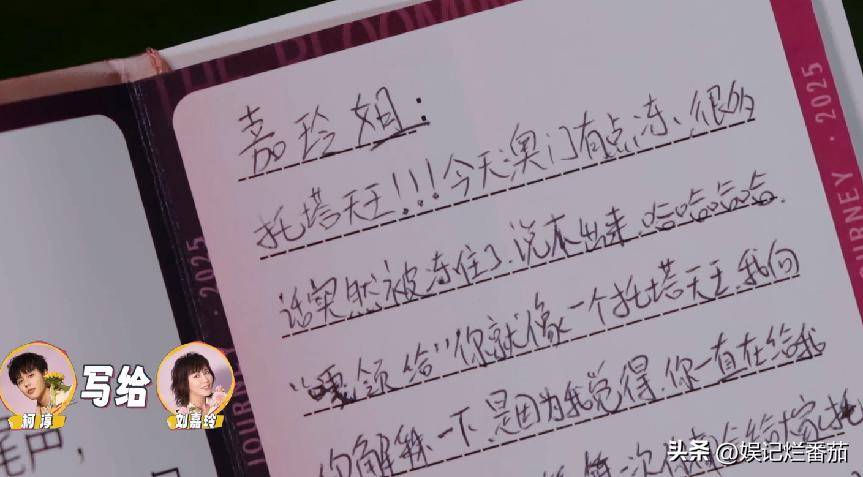 THE BLOOMIN
嘉玲姐：
托塔天王!!!今天澳门有点冻、很多
话突然被冻住了,说不出来,哈哈哈哈.
"嘎领给"你就像一个托塔天王,我向
你解释一下,是因为我觉得,你一直在给我
第一次你
JOURNEY · 2025
JOURNEY · 2025
尾声，
柯淳 写给 刘嘉玲
头条 @娱记烂番茄